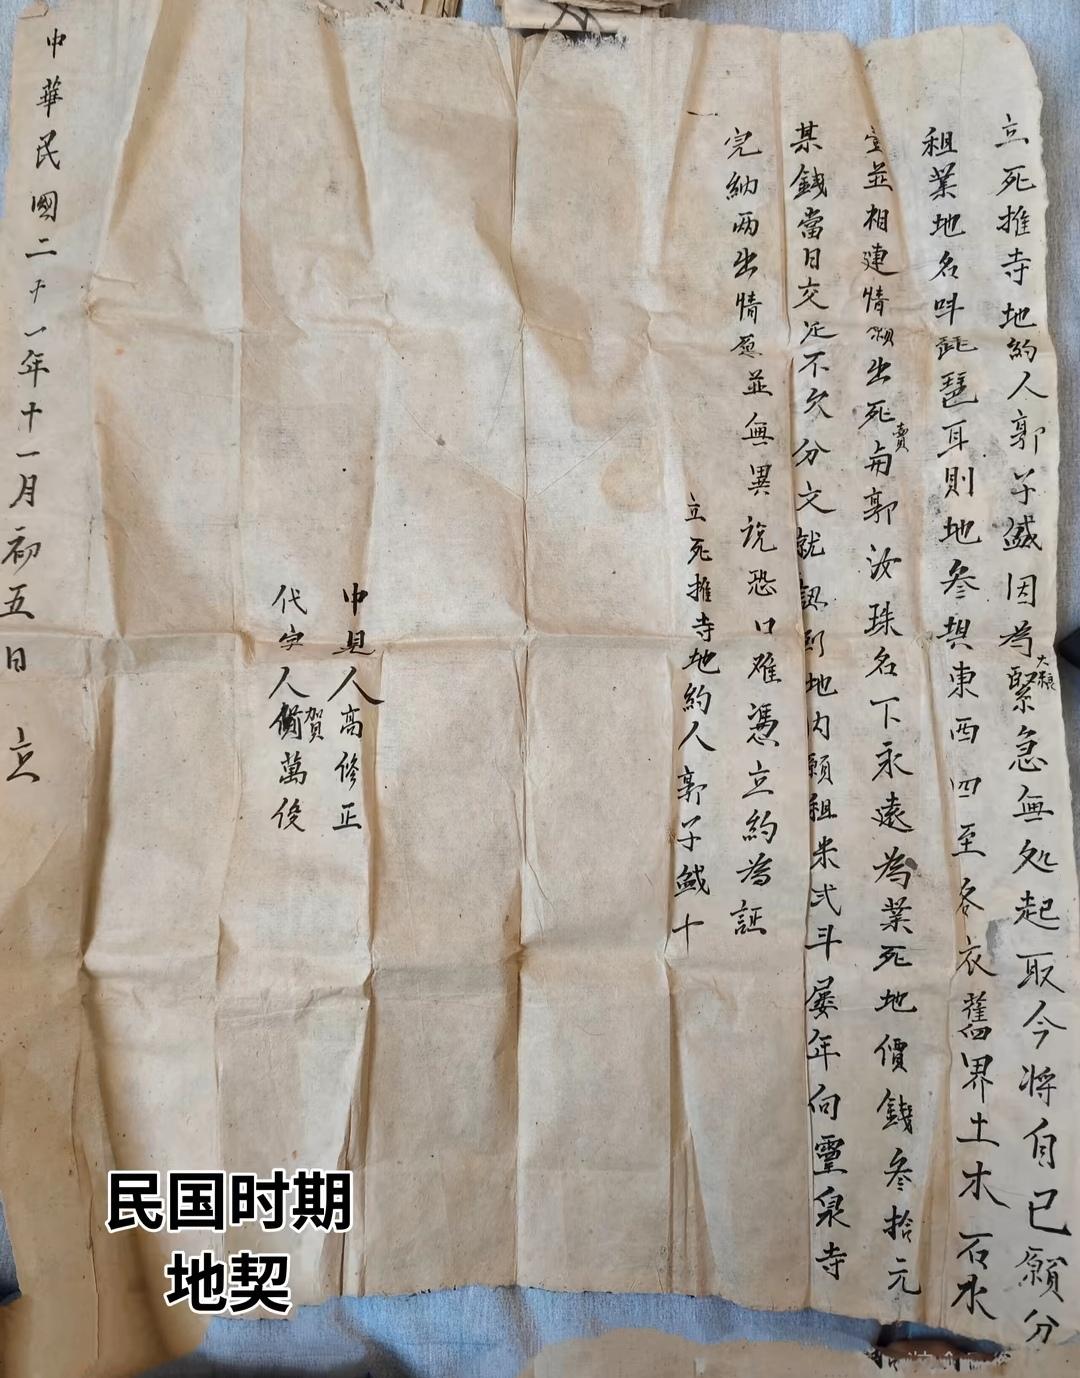 立死推寺地約人郭子盛因為大粮緊急無処起取今将自己願分
租業地名呌琵琶耳則地叁垻東西四至各衣舊四界土木石水
壹並相連情願出死賣與郭汝珠名下永遠為業死地價錢叁拾元
某錢當日交足不欠分文就認到地内願租米弍斗屡年向靈泉寺
完納两出情愿並無異說恐口难憑立約為証
立死推寺地約人郭子盛十
中見人高修正
代字人賀萬俊
中華民國二十一年十一月初五日立
民国时期
地契